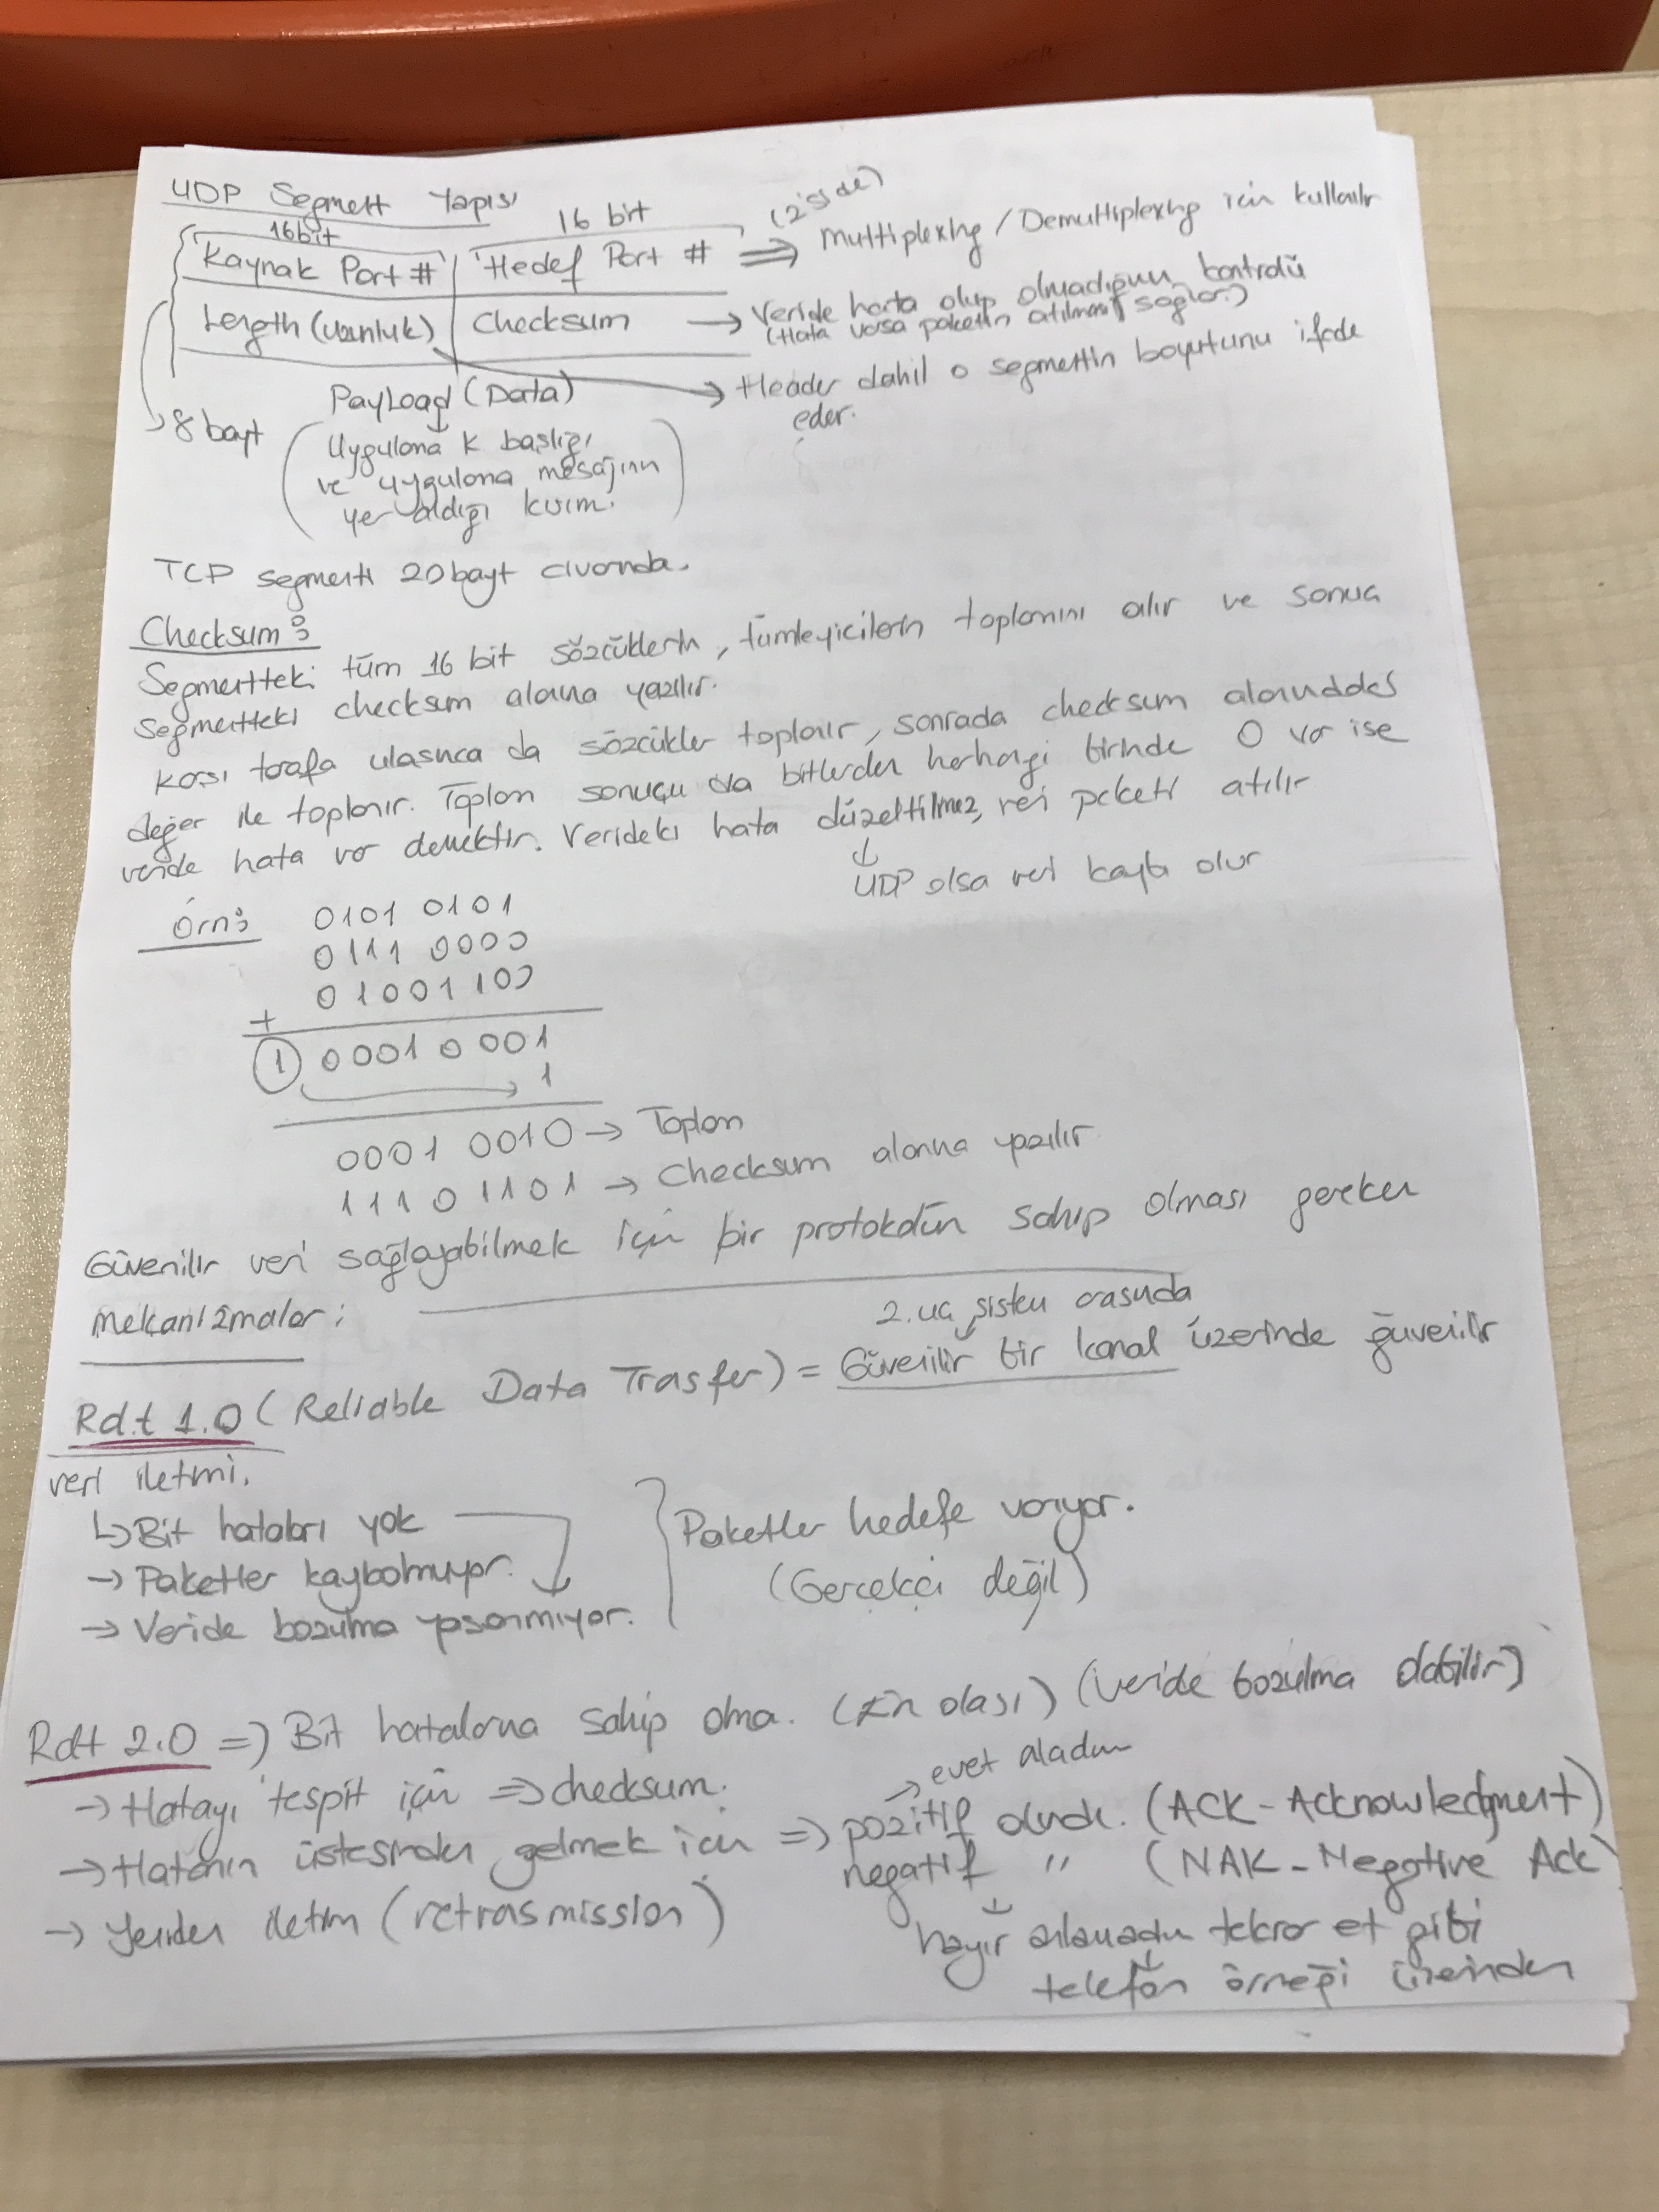 UDP Segment Yapısı
16bit 16 bit (2'side)
Kaynak Port # | Hedef Port # ⇒ Multiplexing / Demultiplexing için kullanılır
Length (Uzunluk) | Checksum → Veride hata olup olmadığının kontrolü
(Hata varsa paketin atılmasını sağlar.)
→ Header dahil o segmentin boyutunu ifade
eder.
8 bayt
PayLoad (Data)
(Uygulama k başlığı
ve uygulama mesajının
yer aldığı kısım.)
TCP segmenti 20 bayt civarında.
Checksum :
Segmentteki tüm 16 bit sözcüklerin, tümleyicilerin toplamını alır ve sonuç
segmentteki checksum alanına yazılır.
Karşı tarafa ulaşınca da sözcükler toplanır, sonrada checksum alanındaki
değer ile toplanır. Toplam sonucu da bitlerden herhangi birinde 0 var ise
veride hata var demektir. Verideki hata düzeltilmez, veri paketi atılır
↓
UDP olsa veri kaybı olur
Örn:
0101 0101
0111 0000
01001100
+
1 00010001
1
0001 0010 → Toplam
11101101 → Checksum alanına yazılır
Güvenilir veri sağlayabilmek için bir protokolün sahip olması gereken
mekanizmalar :
2. uç sistem arasında
Rdt 1.0 ( Reliable Data Trasfer) = Güvenilir bir kanal üzerinde güvenilir
veri iletimi.
↳ Bit hataları yok
→ Paketler kaybolmuyor.
→ Veride bozulma yaşanmıyor.
Paketler hedefe varıyor.
(Gerçekçi değil)
Rdt 2.0 => Bit hatalarına sahip olma. (En olası) (veride bozulma olabilir)
→ Hatayı tespit için => checksum.
→ evet aladım
→ Hatanın üstesinden gelmek için => pozitif alındı. (ACK - Acknowledgment)
negatif " (NAK - Negative Ack)
→ Yeniden iletim (retrasmission)
hayır anlamadım tekrar et gibi
telefon örneği üzerinden